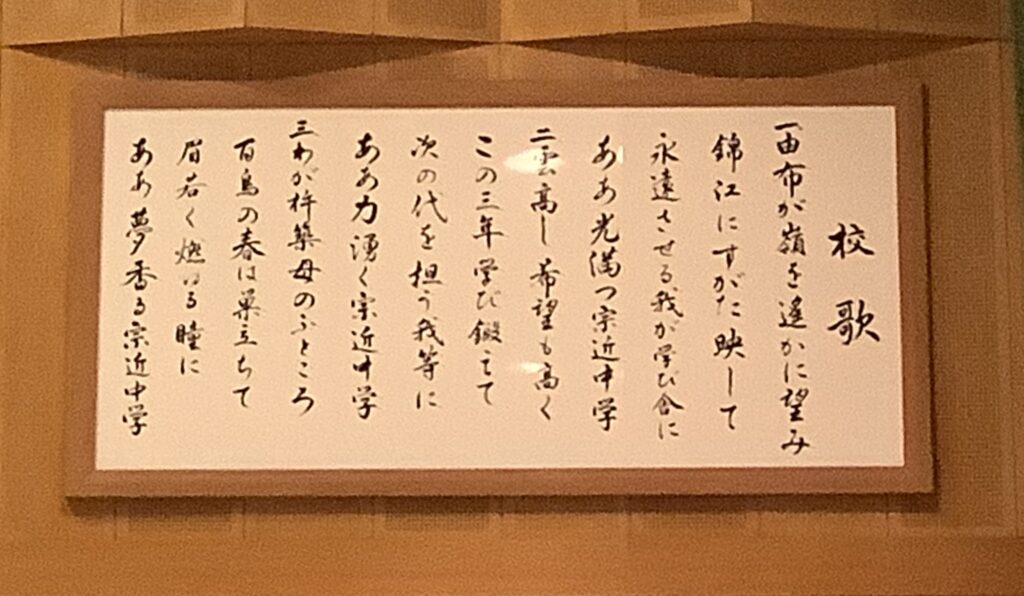 校歌
一由布が嶺を遙かに望み
錦江にすがた映して
永遠させる我が学び舎に
ああ光満つ宗近中学
二雲高し希望も高く
この三年学び鍛えて
次の代を担う我等に
ああ力湧く宗近中学
三わが杵築母のふところ
百鳥の春は巣立ちて
眉若く燃ゆる瞳に
ああ夢香る宗近中学